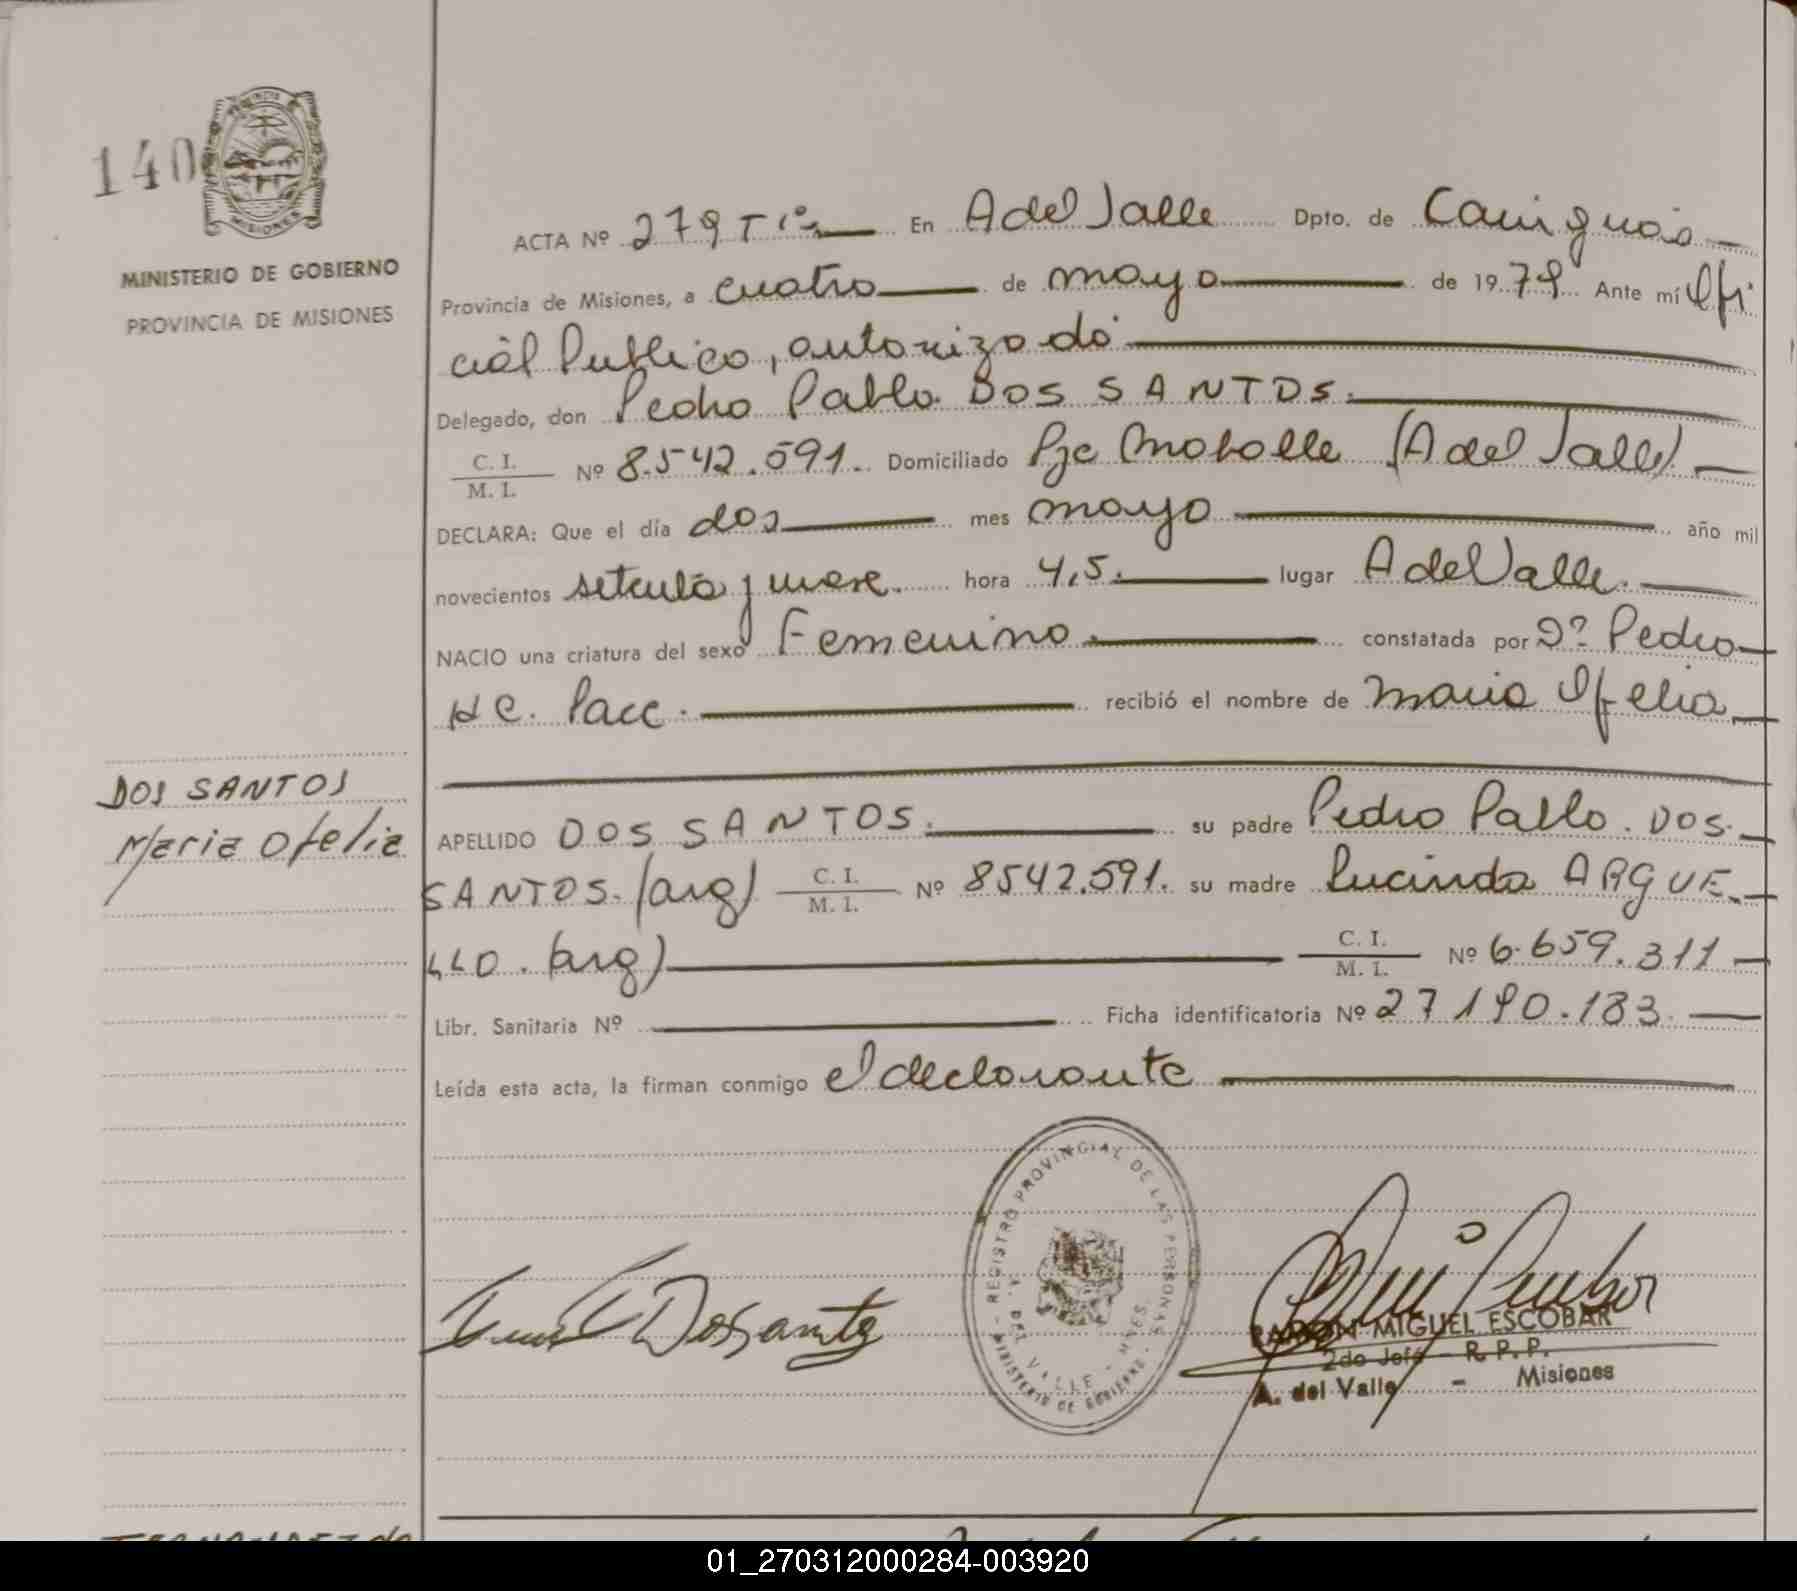 140
PROVINCIA
MISIONES
MINISTERIO DE GOBIERNO
PROVINCIA DE MISIONES
ACTA Nº 279 T 1º En A del Valle Dpto. de Cainguás
Provincia de Misiones, a cuatro de mayo de 1979 Ante mí Ofi
cial Publico, autorizado
Delegado, don Pedro Pablo DOS SANTOS.
C. I.
M. I. Nº 8.542.591. Domiciliado Pje (A del Valle)
DECLARA: Que el día dos mes mayo año mil
novecientos setenta y nueve. hora 4,5. lugar A del Valle.
NACIO una criatura del sexo Femenino. constatada por Dº Pedro
recibió el nombre de Maria Ofelia
DOS SANTOS
Maria Ofelia
APELLIDO DOS SANTOS. su padre Pedro Pablo. DOS
SANTOS. (arg) C. I.
M. I. Nº 8542.591. su madre Lucinda ARGUE
LLO. (arg) C. I.
M. I. Nº 6.659.311
Libr. Sanitaria Nº Ficha identificatoria Nº 27190.183.
Leída esta acta, la firman conmigo el declarante
REGISTRO PROVINCIAL DE LAS PERSONAS
MINISTERIO DE GOBIERNO
A. DEL VALLE - MNES.
Dossantos
RAMON MIGUEL ESCOBAR
2do Jefe - R. P. P.
A. del Valle - Misiones
01_270312000284-003920